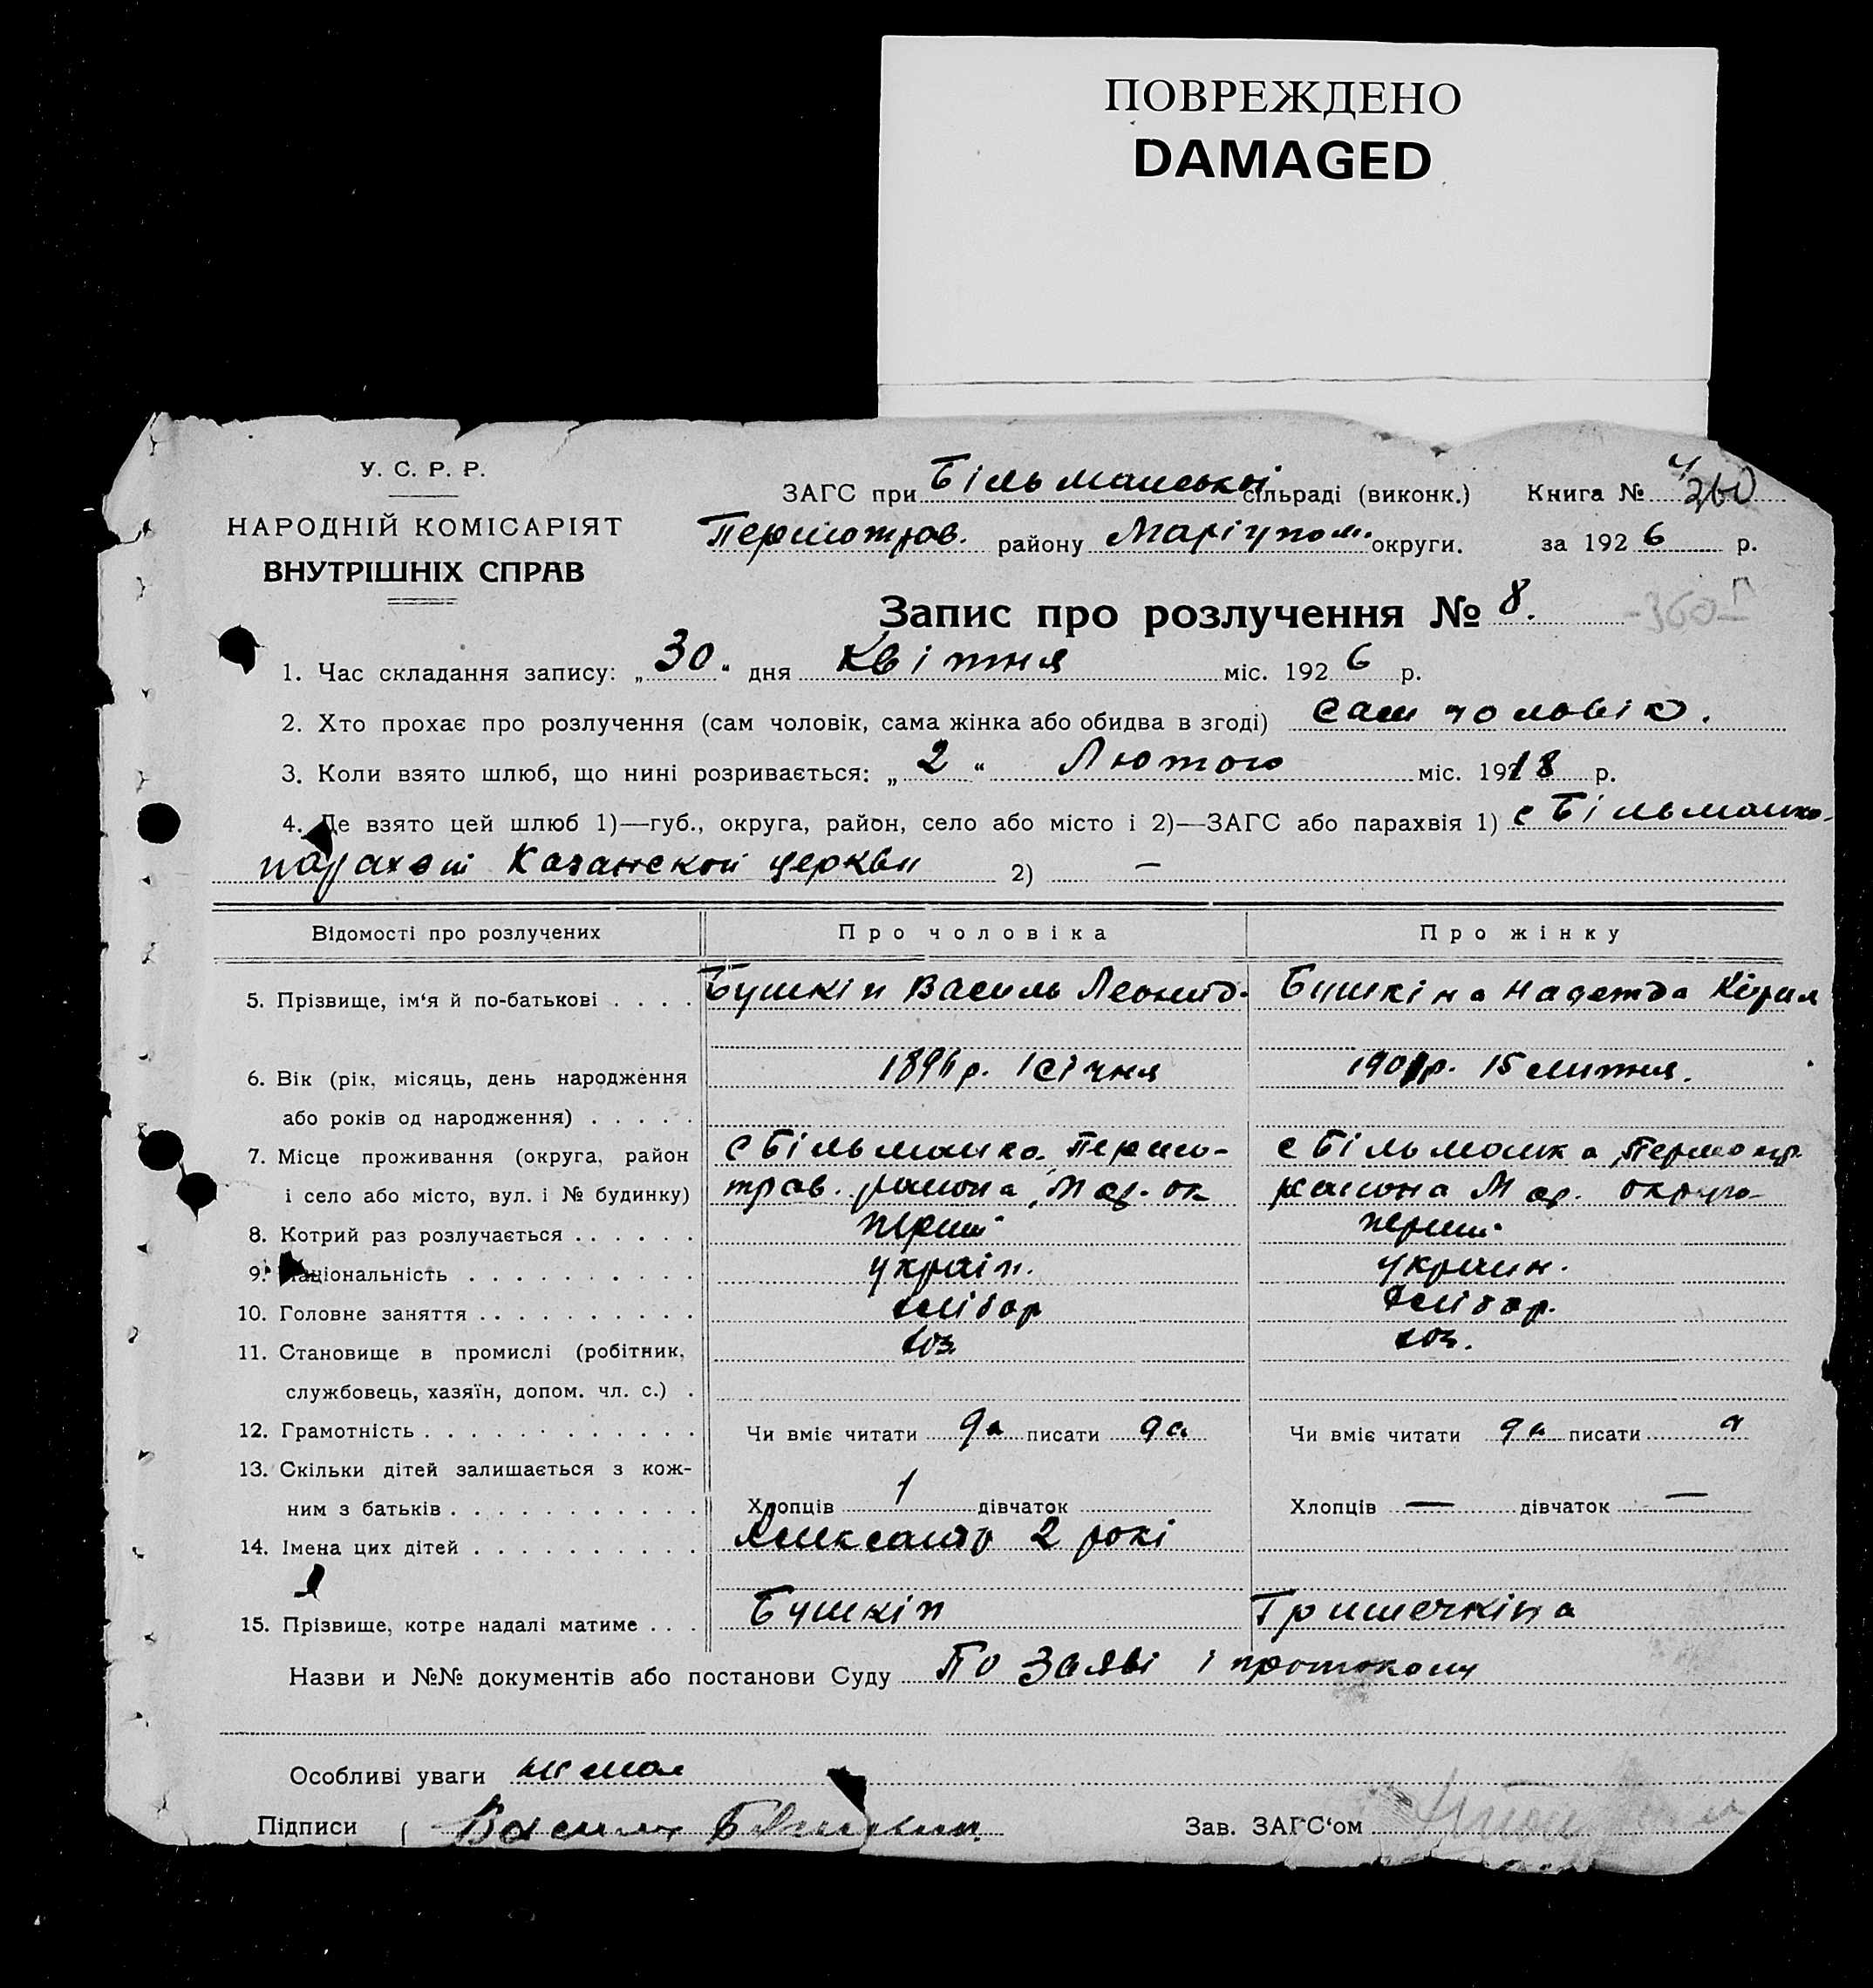 ПОВРЕЖДЕНО
DAMAGED
У. С. Р. Р.
НАРОДНІЙ КОМІСАРІЯТ
ВНУТРІШНІХ СПРАВ
ЗАГС при Більманській сільраді (виконк.) Книга № 4/260
Першотрав. району Маріупол. округи. за 1926 р.
Запис про розлучення № 8. -360-
1. Час складання запису: „30" дня Квітня міс. 1926 р.
2. Хто прохає про розлучення (сам чоловік, сама жінка або обидва в згоді) сам чоловік.
3. Коли взято шлюб, що нині розривається: „2" Лютого міс. 1918 р.
4. Де взято цей шлюб 1)—губ., округа, район, село або місто і 2)—ЗАГС або парахвія 1) с Більманка
парахвії Казанской церкви 2) —
Відомості про розлучених Про чоловіка Про жінку
5. Прізвище, ім'я й по-батькові . . . . Бушкін Василь Леонид. Бушкіна Надежда Кірил
6. Вік (рік, місяць, день народження 1896 р. 1 січня 1901 р. 15 липня.
або років од народження) . . . . .
7. Місце проживання (округа, район с Більманка Першо- с Більманка, Першотр.
і село або місто, вул. і № будинку) трав. района, Мар. ок района Мар. округи
8. Котрий раз розлучається . . . . . . перший перший
9. Національність . . . . . . . . . . україн. украин.
10. Головне заняття . . . . . . . . . . хлібор хлібор.
11. Становище в промислі (робітник, хоз хоз.
службовець, хазяїн, допом. чл. с.) .
12. Грамотність . . . . . . . . . . . . Чи вміє читати да писати да Чи вміє читати да писати д
13. Скільки дітей залишається з кож-
ним з батьків . . . . . . . . . . . Хлопців 1 дівчаток Хлопців — дівчаток —
14. Імена цих дітей . . . . . . . . . . Александр 2 рокі
15. Прізвище, котре надалі матиме . . . Бушкін Гришечкіна
Назви и №№ документів або постанови Суду По заяві і протоколу
Особливі уваги нимає
Підписи ( Василь Бушкин.
Зав. ЗАГС'ом